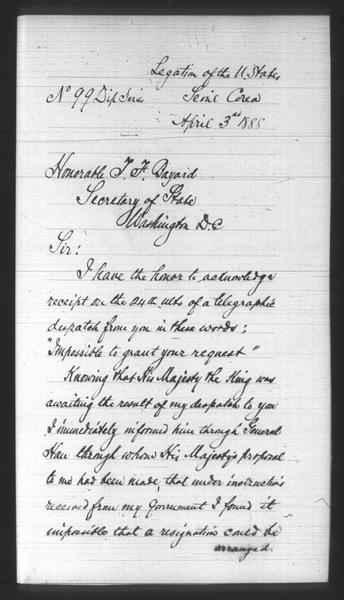 Legation of the U. States
Nº 99 Dip Series Seoul Corea
April 3rd 1888
Honorable T. F. Bayard
Secretary of State
Washington D.C
Sir:
I have the honor to acknowledge
receipt on the 24th ulto of a telegraphic
despatch from you in these words:
"Impossible to grant your request"
Knowing that His Majesty the King was
awaiting the result of my despatch to you
I immediately informed him through General
Han through whom His Majesty's proposal
to me had been made, that under instructions
received from my Government I found it
impossible that a resignation could be
arranged.